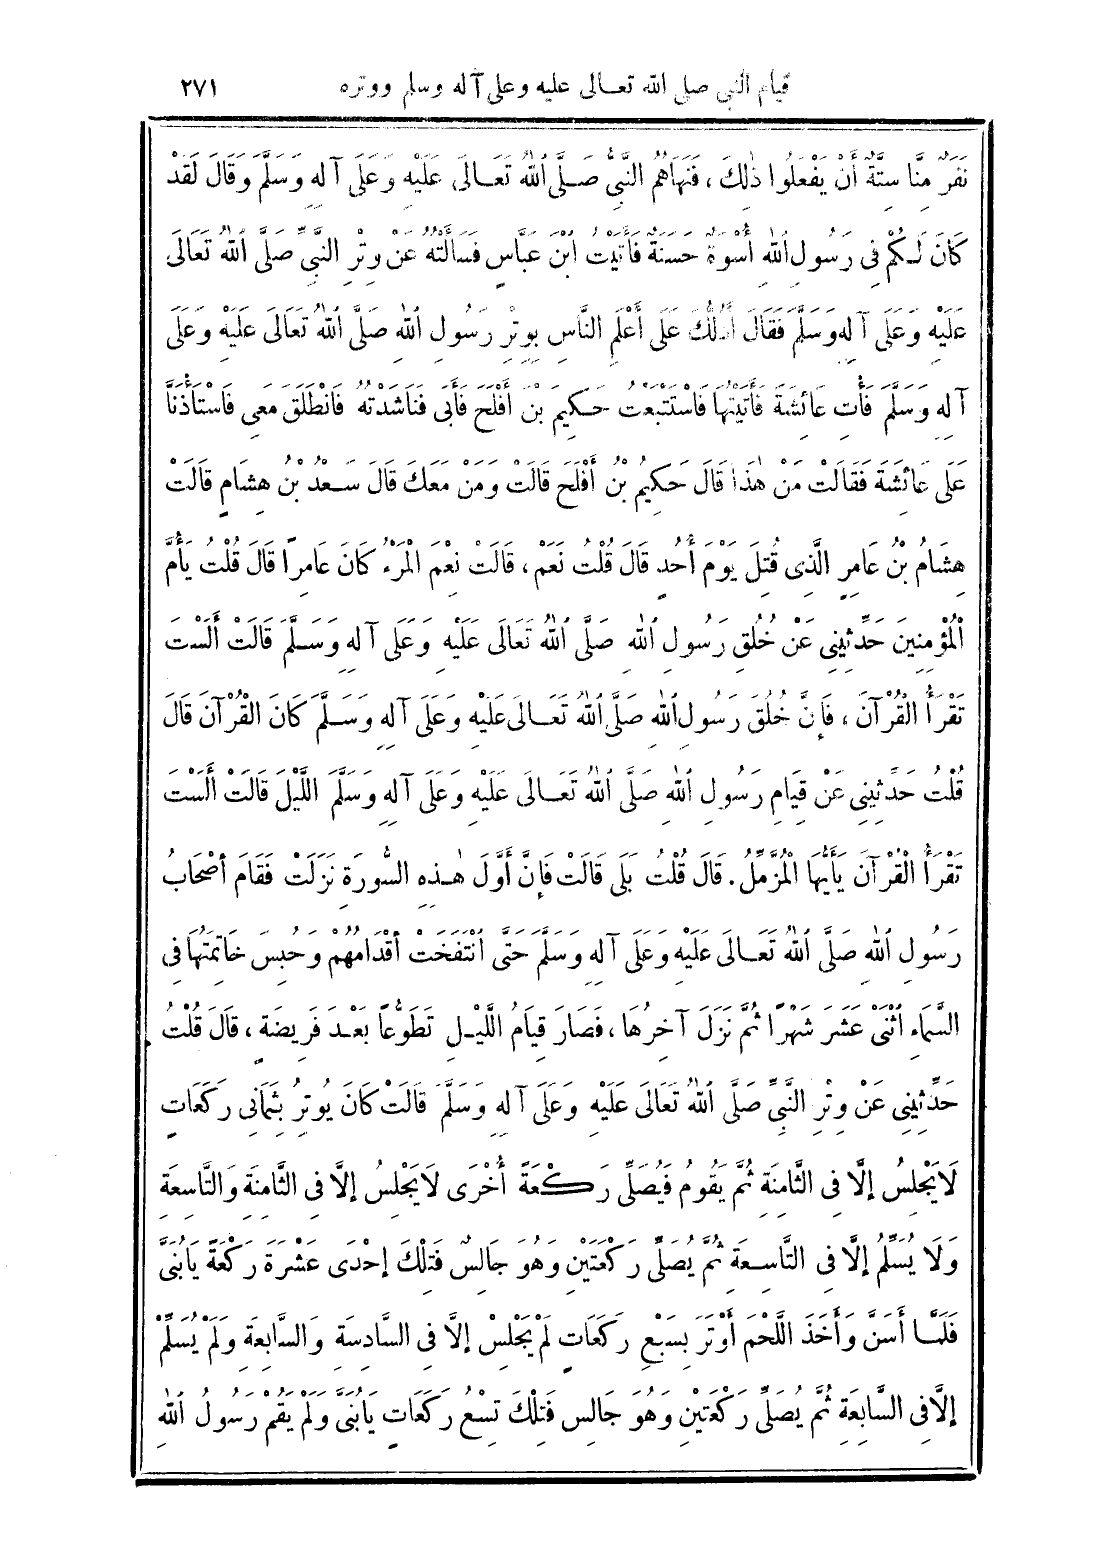 قيام النبي صلى الله تعالى عليه وعلى آله وسلم ووتره ٢٧١
نَفَرٌ مِنَّا سِتَّةٌ أَنْ يَفْعَلُوا ذٰلِكَ ، فَنَهَاهُمُ النَّبِيُّ صَلَّى اللهُ تَعَالَى عَلَيْهِ وَعَلَى آلِهِ وَسَلَّمَ وَقَالَ لَقَدْ
كَانَ لَكُمْ فِي رَسُولِ اللهِ أُسْوَةٌ حَسَنَةٌ فَأَتَيْتُ ابْنَ عَبَّاسٍ فَسَأَلْتُهُ عَنْ وِتْرِ النَّبِيِّ صَلَّى اللهُ تَعَالَى
عَلَيْهِ وَعَلَى آلِهِ وَسَلَّمَ فَقَالَ أَدُلُّكَ عَلَى أَعْلَمِ النَّاسِ بِوِتْرِ رَسُولِ اللهِ صَلَّى اللهُ تَعَالَى عَلَيْهِ وَعَلَى
آلِهِ وَسَلَّمَ فَأْتِ عَائِشَةَ فَأَتَيْتُهَا فَاسْتَتْبَعْتُ حَكِيمَ بْنَ أَفْلَحَ فَأَبَى فَنَاشَدْتُهُ فَانْطَلَقَ مَعِي فَاسْتَأْذَنَّا
عَلَى عَائِشَةَ فَقَالَتْ مَنْ هٰذَا قَالَ حَكِيمُ بْنُ أَفْلَحَ قَالَتْ وَمَنْ مَعَكَ قَالَ سَعْدُ بْنُ هِشَامٍ قَالَتْ
هِشَامُ بْنُ عَامِرٍ الَّذِي قُتِلَ يَوْمَ أُحُدٍ قَالَ قُلْتُ نَعَمْ ، قَالَتْ نِعْمَ الْمَرْءُ كَانَ عَامِرًا قَالَ قُلْتُ يَأُمَّ
الْمُؤْمِنِينَ حَدِّثِينِي عَنْ خُلُقِ رَسُولِ اللهِ صَلَّى اللهُ تَعَالَى عَلَيْهِ وَعَلَى آلِهِ وَسَلَّمَ قَالَتْ أَلَسْتَ
تَقْرَأُ الْقُرْآنَ ، فَإِنَّ خُلُقَ رَسُولِ اللهِ صَلَّى اللهُ تَعَالَى عَلَيْهِ وَعَلَى آلِهِ وَسَلَّمَ كَانَ الْقُرْآنَ قَالَ
قُلْتُ حَدِّثِينِي عَنْ قِيَامِ رَسُولِ اللهِ صَلَّى اللهُ تَعَالَى عَلَيْهِ وَعَلَى آلِهِ وَسَلَّمَ اللَّيْلَ قَالَتْ أَلَسْتَ
تَقْرَأُ الْقُرْآنَ يَأَيُّهَا الْمُزَّمِّلُ . قَالَ قُلْتُ بَلَى قَالَتْ فَإِنَّ أَوَّلَ هٰذِهِ السُّورَةِ نَزَلَتْ فَقَامَ أَصْحَابُ
رَسُولِ اللهِ صَلَّى اللهُ تَعَالَى عَلَيْهِ وَعَلَى آلِهِ وَسَلَّمَ حَتَّى انْتَفَخَتْ أَقْدَامُهُمْ وَحُبِسَ خَاتِمَتُهَا فِي
السَّمَاءِ اثْنَيْ عَشَرَ شَهْرًا ثُمَّ نَزَلَ آخِرُهَا ، فَصَارَ قِيَامُ اللَّيْلِ تَطَوُّعًا بَعْدَ فَرِيضَةٍ ، قَالَ قُلْتُ
حَدِّثِينِي عَنْ وِتْرِ النَّبِيِّ صَلَّى اللهُ تَعَالَى عَلَيْهِ وَعَلَى آلِهِ وَسَلَّمَ قَالَتْ كَانَ يُوتِرُ بِثَمَانِي رَكَعَاتٍ
لَا يَجْلِسُ إِلَّا فِي الثَّامِنَةِ ثُمَّ يَقُومُ فَيُصَلِّي رَكْعَةً أُخْرَى لَا يَجْلِسُ إِلَّا فِي الثَّامِنَةِ وَالتَّاسِعَةِ
وَلَا يُسَلِّمُ إِلَّا فِي التَّاسِعَةِ ثُمَّ يُصَلِّي رَكْعَتَيْنِ وَهُوَ جَالِسٌ فَتِلْكَ إِحْدَى عَشْرَةَ رَكْعَةً يَا بُنَيَّ
فَلَمَّا أَسَنَّ وَأَخَذَ اللَّحْمَ أَوْتَرَ بِسَبْعِ رَكَعَاتٍ لَمْ يَجْلِسْ إِلَّا فِي السَّادِسَةِ وَالسَّابِعَةِ وَلَمْ يُسَلِّمْ
إِلَّا فِي السَّابِعَةِ ثُمَّ يُصَلِّي رَكْعَتَيْنِ وَهُوَ جَالِسٌ فَتِلْكَ تِسْعُ رَكَعَاتٍ يَا بُنَيَّ وَلَمْ يَقُمْ رَسُولُ اللهِ